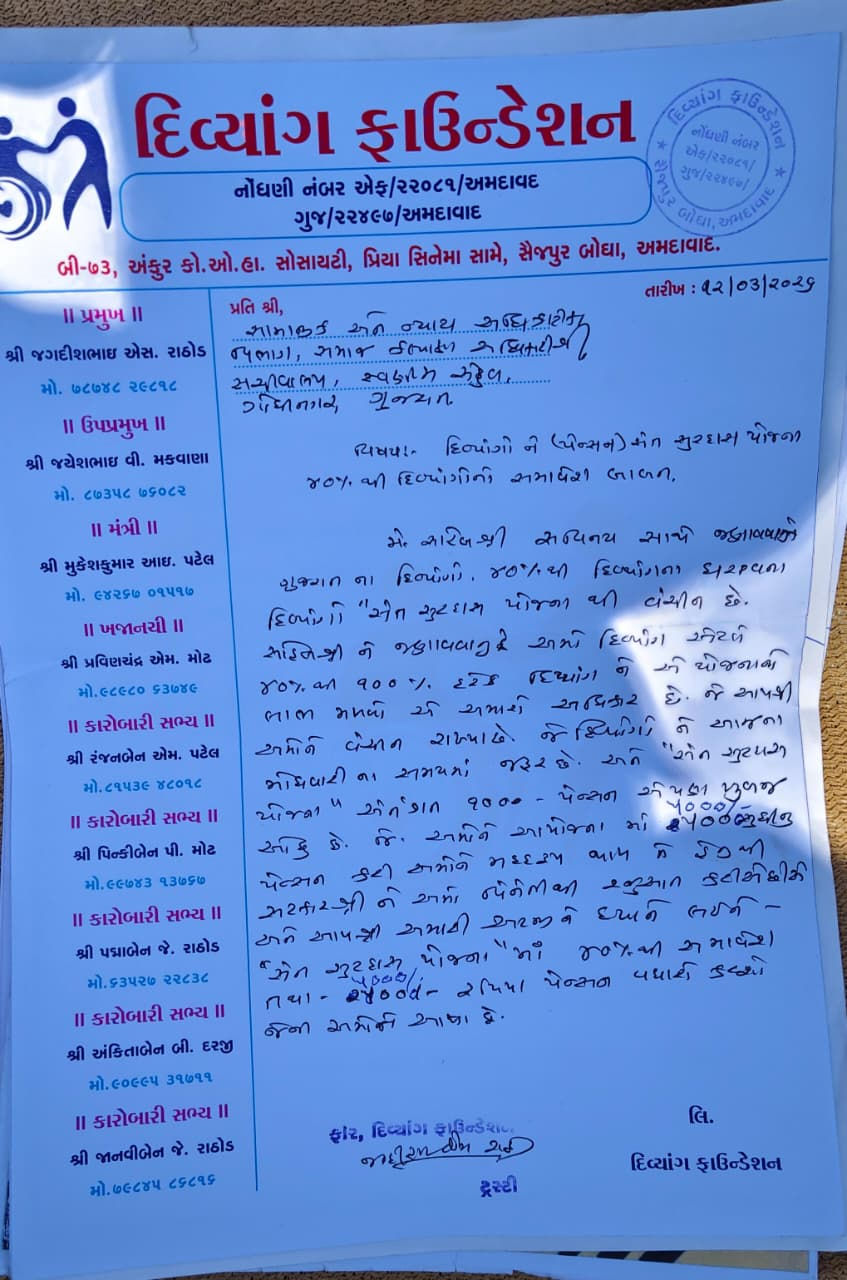 દિવ્યાંગ ફાઉન્ડેશન
નોંધણી નંબર એફ/૨૨૦૮૧/અમદાવદ
ગુજ/૨૨૪૯૭/અમદાવાદ
દિવ્યાંગ ફાઉન્ડેશન
નોંધણી નંબર
એફ/૨૨૦૮૧/
ગુજ/૨૨૪૯૭/
સૈજપુર બોઘા, અમદાવાદ
બી-૭૩, અંકુર કો.ઓ.હા. સોસાયટી, પ્રિયા સિનેમા સામે, સૈજપુર બોઘા, અમદાવાદ.
॥ પ્રમુખ ॥
શ્રી જગદીશભાઇ એસ. રાઠોડ
મો. ૭૮૭૪૮ ૨૯૮૧૮
॥ ઉપપ્રમુખ ॥
શ્રી જયેશભાઇ વી. મકવાણા
મો. ૮૭૩૫૮ ૭૬૦૮૨
॥ મંત્રી ॥
શ્રી મુકેશકુમાર આઇ. પટેલ
મો. ૯૪૨૬૭ ૦૧૫૧૭
॥ ખજાનચી ॥
શ્રી પ્રવિણચંદ્ર એમ. મોટ
મો.૯૮૯૮૦ ૬૩૭૪૯
॥ કારોબારી સભ્ય ॥
શ્રી રંજનબેન એમ. પટેલ
મો.૮૧૫૩૯ ૪૮૦૧૮
॥ કારોબારી સભ્ય ॥
શ્રી પિન્કીબેન પી. મોટ
મો.૯૯૭૪૩ ૧૩૭૬૭
॥ કારોબારી સભ્ય ॥
શ્રી પદ્માબેન જે. રાઠોડ
મો.૬૩૫૨૭ ૨૨૮૩૮
॥ કારોબારી સભ્ય ॥
શ્રી અંકિતાબેન બી. દરજી
મો.૯૦૯૯૫ ૩૧૭૧૧
॥ કારોબારી સભ્ય ॥
શ્રી જાનવીબેન જે. રાઠોડ
મો.૭૯૮૪૫ ૮૬૮૧૬
તારીખ : ૧૨/૦૩/૨૦૨૬
પ્રતિ શ્રી,
સામાજીક અને ન્યાય અધિકારીતા
વિભાગ, સમાજ કલ્યાણ અધિકારીશ્રી
સચીવાલય, સ્વર્ણીમ સંકુલ,
ગાંધીનગર, ગુજરાત.
વિષય:- દિવ્યાંગો ને (પેન્સન) સંત સુરદાસ યોજના
૪૦% થી દિવ્યાંગોનો સમાવેશ બાબત.
મે. સાહેબશ્રી સવિનય સાથે જણાવવાનું
ગુજરાત ના દિવ્યાંગો. ૪૦% થી દિવ્યાંગના ધરાવતા
દિવ્યાંગો "સંત સુરદાસ યોજના થી વંચીત છે.
સાહેબશ્રી ને જણાવવાનું કે અમો દિવ્યાંગ એટલે
૪૦% થી ૧૦૦% દરેક દિવ્યાંગ ને એ યોજનાનો
લાભ મળવો એ અમારો અધિકાર છે. જે આપશ્રી
અમોને વંચીત રાખ્યા છે. જે દિવ્યાંગો ને આજના
મોંઘવારી ના સમયમાં જરૂર છે. અને "સંત સુરદાસ
યોજના" અંતર્ગત ૧૦૦૦ - પેન્સન એ પણ ખુબજ
ઓછુ છે. જે. અમોને આ યોજના માં ૫૦૦૦/- સુધીનું
પેન્સન કરી અમોને મદદરૂપ થાય તે હેતુથી
સરકારશ્રી ને અમો રજુઆત કરીએ છીએ
અને આપશ્રી અમારી અરજી ને ધ્યાને લઇને -
"સંત સુરદાસ યોજના" માં ૪૦% થી સમાવેશ
તથા - ૫૦૦૦/- રૂપિયા પેન્સન વધારો કરશો
જેની અમોને આશા છે.
ફોર, દિવ્યાંગ ફાઉન્ડેશન
ટ્રસ્ટી
લિ.
દિવ્યાંગ ફાઉન્ડેશન